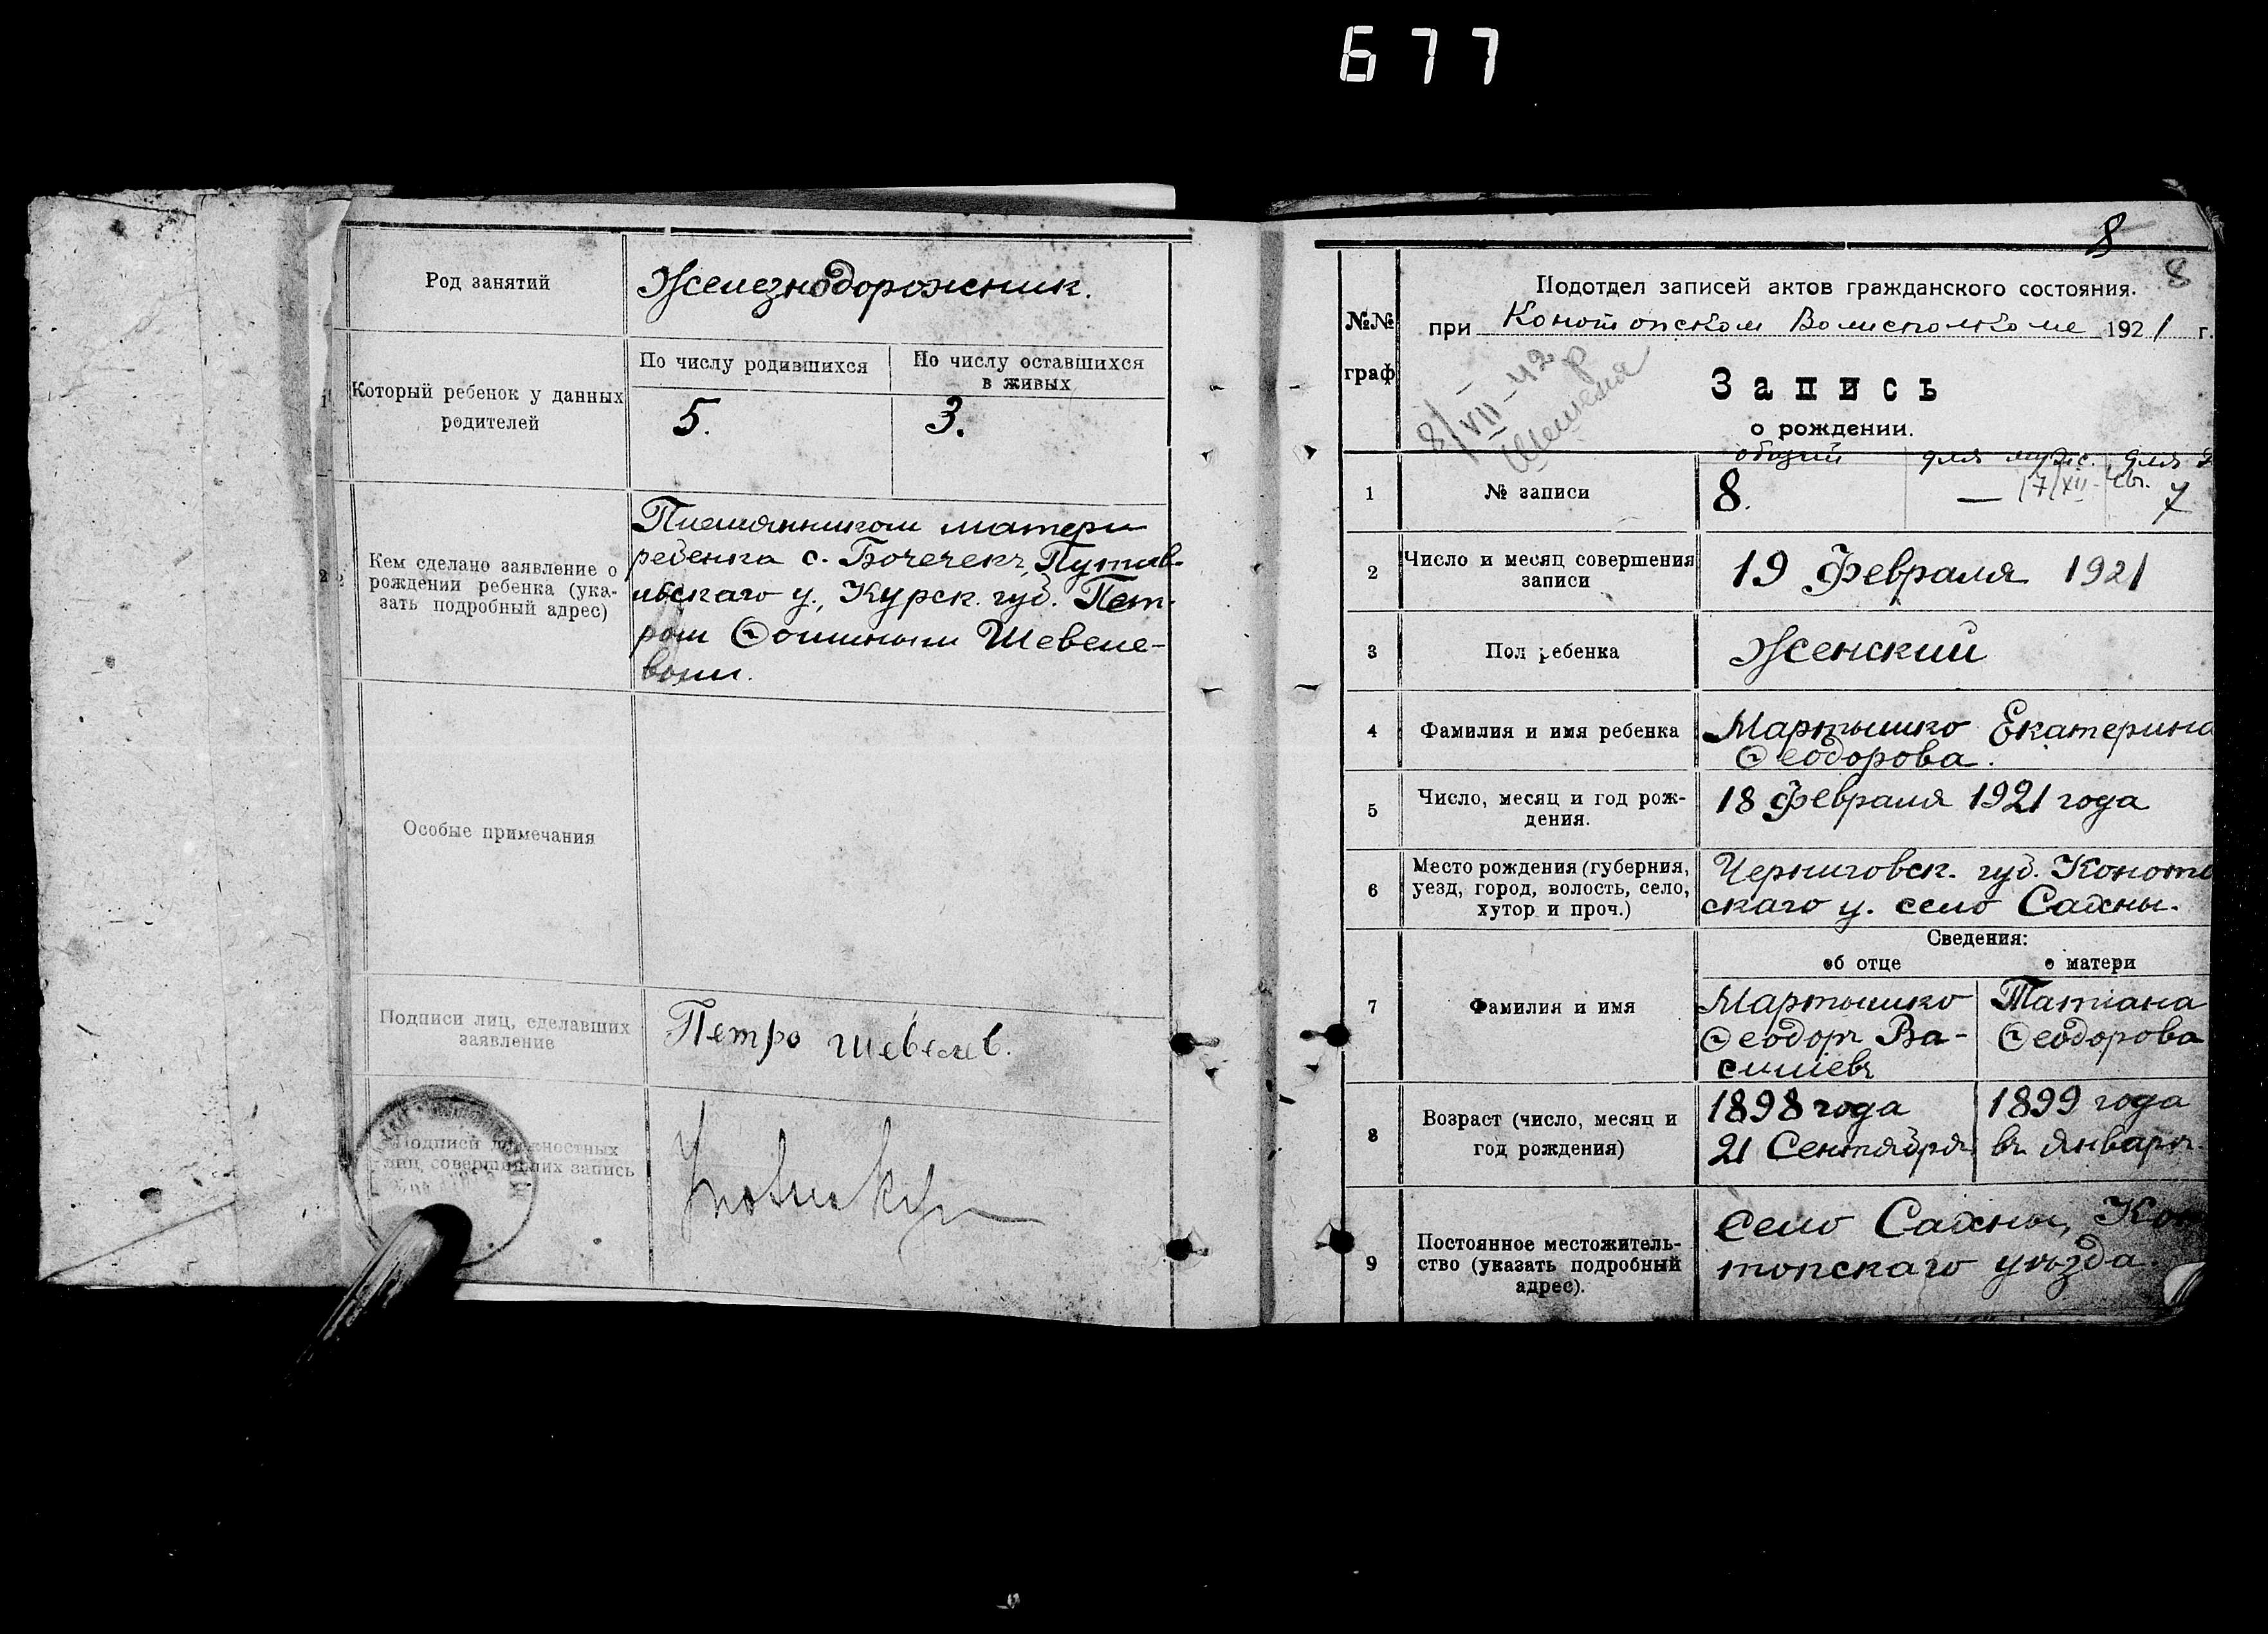 677
Род занятий
Железнодорожник.
Который ребенок у данных
родителей
По числу родившихся
По числу оставшихся
в живых
5.
3.
Кем сделано заявление о
рождении ребенка (ука-
зать подробный адрес)
Племянником матери
ребенка с. Бочечекъ, Путив-
льскаго у., Курск. губ. Пет-
ром Фоминым Шевеле-
вым.
Особые примечания
Подписи лиц, сделавших
заявление
Петро шевелев.
Подписи должностных
лиц, совершивших запись
8
8
№№
граф
Подотдел записей актов гражданского состояния.
при Конотопском Волисполкоме 1921 г.
Запись
о рождении.
8/VII-42
общий для муж. для
1
№ записи
8.
— 17/XII
7
2
Число и месяц совершения
записи
19 Февраля 1921
3
Пол ребенка
Женский
4
Фамилия и имя ребенка
Мартышко Екатерина
Ѳеодорова.
5
Число, месяц и год рож-
дения.
18 Февраля 1921 года
6
Место рождения (губерния,
уезд, город, волость, село,
хутор и проч.)
Черниговск. губ. Коното
скаго у. село Сахны.
Сведения:
об отце
о матери
7
Фамилия и имя
Мартышко
Ѳеодоръ Ва-
силіевъ
Татіана
Ѳеодорова
8
Возраст (число, месяц и
год рождения)
1898 года
21 Сентября
1899 года
въ январѣ.
9
Постоянное местожитель-
ство (указать подробный
адрес).
Село Сахны, Коно
топскаго уѣзда.